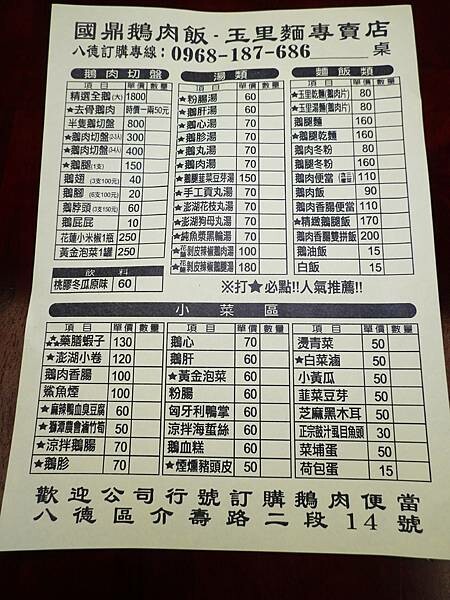 國鼎鵝肉飯·玉里麵專賣店
八德訂購專線：0968-187-686 桌
鵝肉切盤
項目 單價 數量
精選全鵝(大) 1800
★去骨鵝肉 時價一兩50元
半隻鵝切盤 800
★鵝肉切盤(2-3人) 300
★鵝肉切盤(3-4人) 400
★鵝腿(1支) 150
鵝翅(3支100元) 40
鵝腳(6支100元) 20
鵝脖頭(3支150元) 60
鵝屁屁 10
花蓮小米椒1瓶 250
黃金泡菜1罐 250
飲料
桃膠冬瓜原味 60
湯類
項目 單價 數量
★粉腸湯 60
★鵝肝湯 60
★鵝心湯 70
★鵝胗湯 70
★鵝丸湯 70
★鵝肉湯 70
★鵝腿韮菜豆芽湯 150
★手工貢丸湯 40
★澎湖花枝丸湯 70
★澎湖狗母丸湯 70
★純魚漿黑輪湯 70
★花蓮剝皮辣椒鵝肉湯 100
★花蓮剝皮辣椒鵝腿湯 180
麵飯類
項目 單價 數量
★玉里乾麵(鵝肉片) 80
★玉里湯麵(鵝肉片) 80
鵝腿麵 160
★鵝腿乾麵 160
鵝肉冬粉 80
鵝腿冬粉 160
鵝肉便當 110
鵝肉飯 90
鵝肉香腸便當 110
★精緻鵝腿飯 170
鵝肉香腸雙拼飯 200
鵝油飯 15
白飯 15
※打★必點!!人氣推薦!!
小菜區
項目 單價 數量
藥膳蝦子 130
★澎湖小卷 120
鵝肉香腸 100
鯊魚煙 100
★麻辣鴨血臭豆腐 60
★獅潭農會滷竹筍 50
★涼拌鵝腸 70
★鵝胗 70
項目 單價 數量
鵝心 70
鵝肝 60
★黃金泡菜 60
粉腸 60
匈牙利鴨掌 60
涼拌海蜇絲 60
鵝血糕 60
★煙燻豬頭皮 50
項目 單價 數量
燙青菜 50
★白菜滷 50
小黃瓜 50
韮菜豆芽 50
芝麻黑木耳 50
正宗豉汁虱目魚頭 30
菜埔蛋 50
荷包蛋 15
歡迎公司行號訂購鵝肉便當
八德區介壽路二段14號